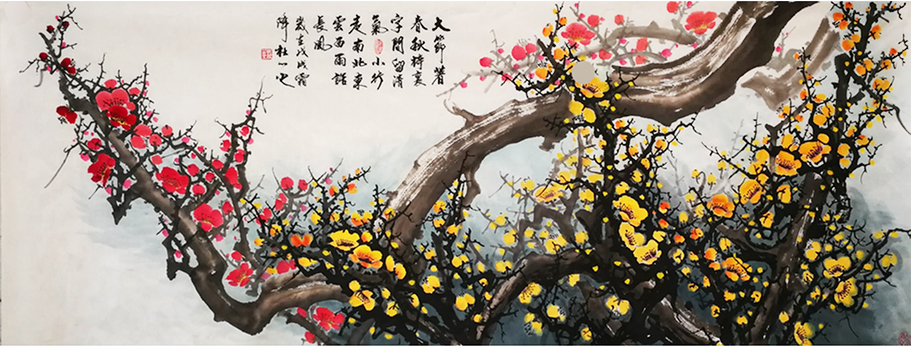 大節著
春秋
字間留清
氣小行
走南北東
雲西雨
長風
歲在戊戌霜
降杜一